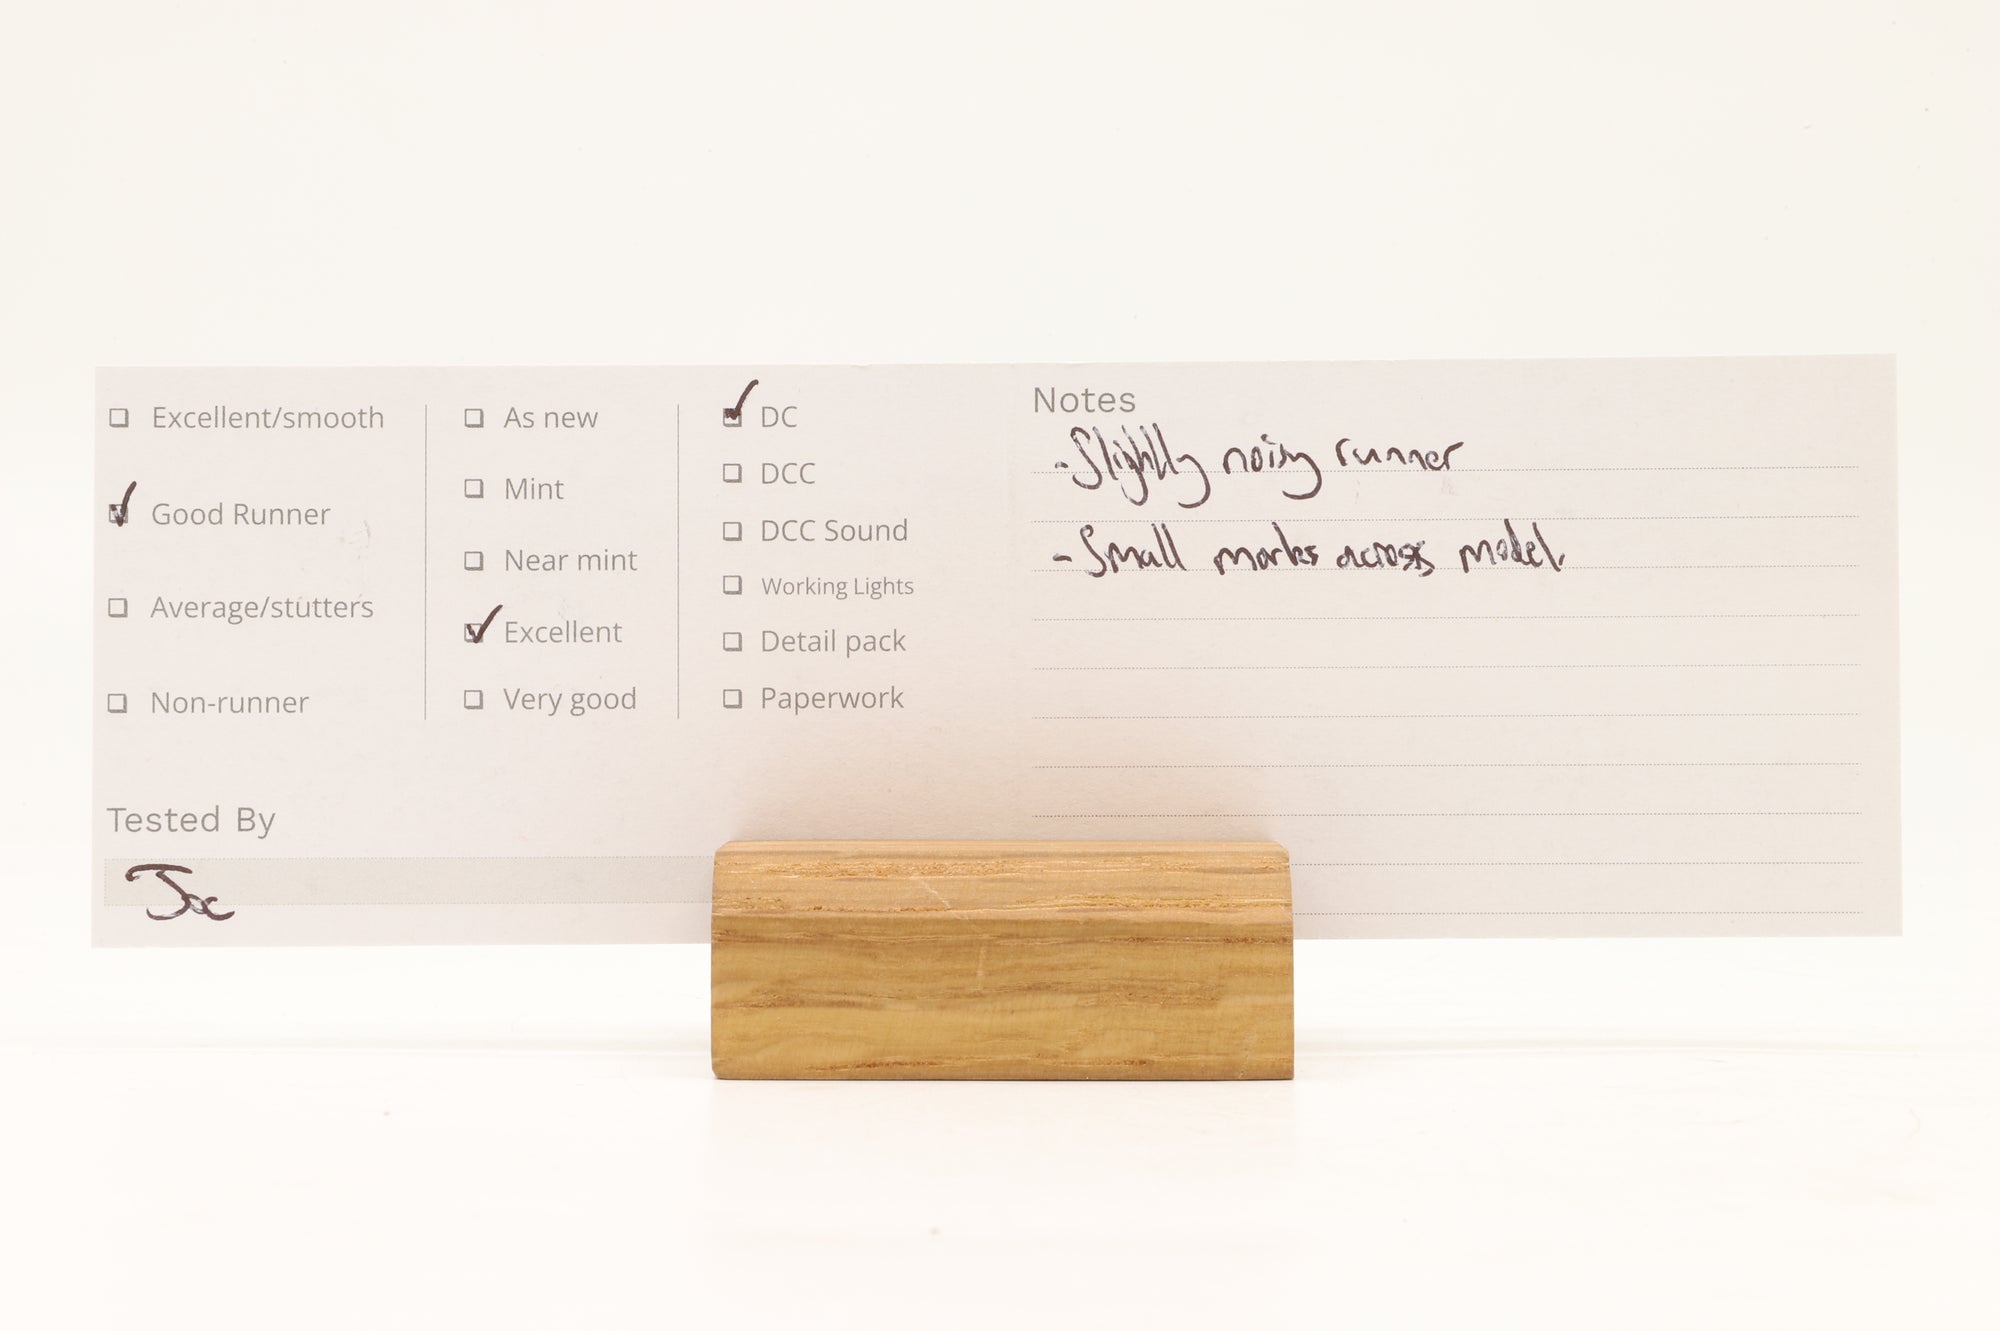 Excellent/smooth
Good Runner
Average/stutters
Non-runner
As new
Mint
Near mint
Excellent
Very good
DC
DCC
DCC Sound
Working Lights
Detail pack
Paperwork
Tested By
Joe
Notes
- Slightly noisy runner
- Small marks across model.